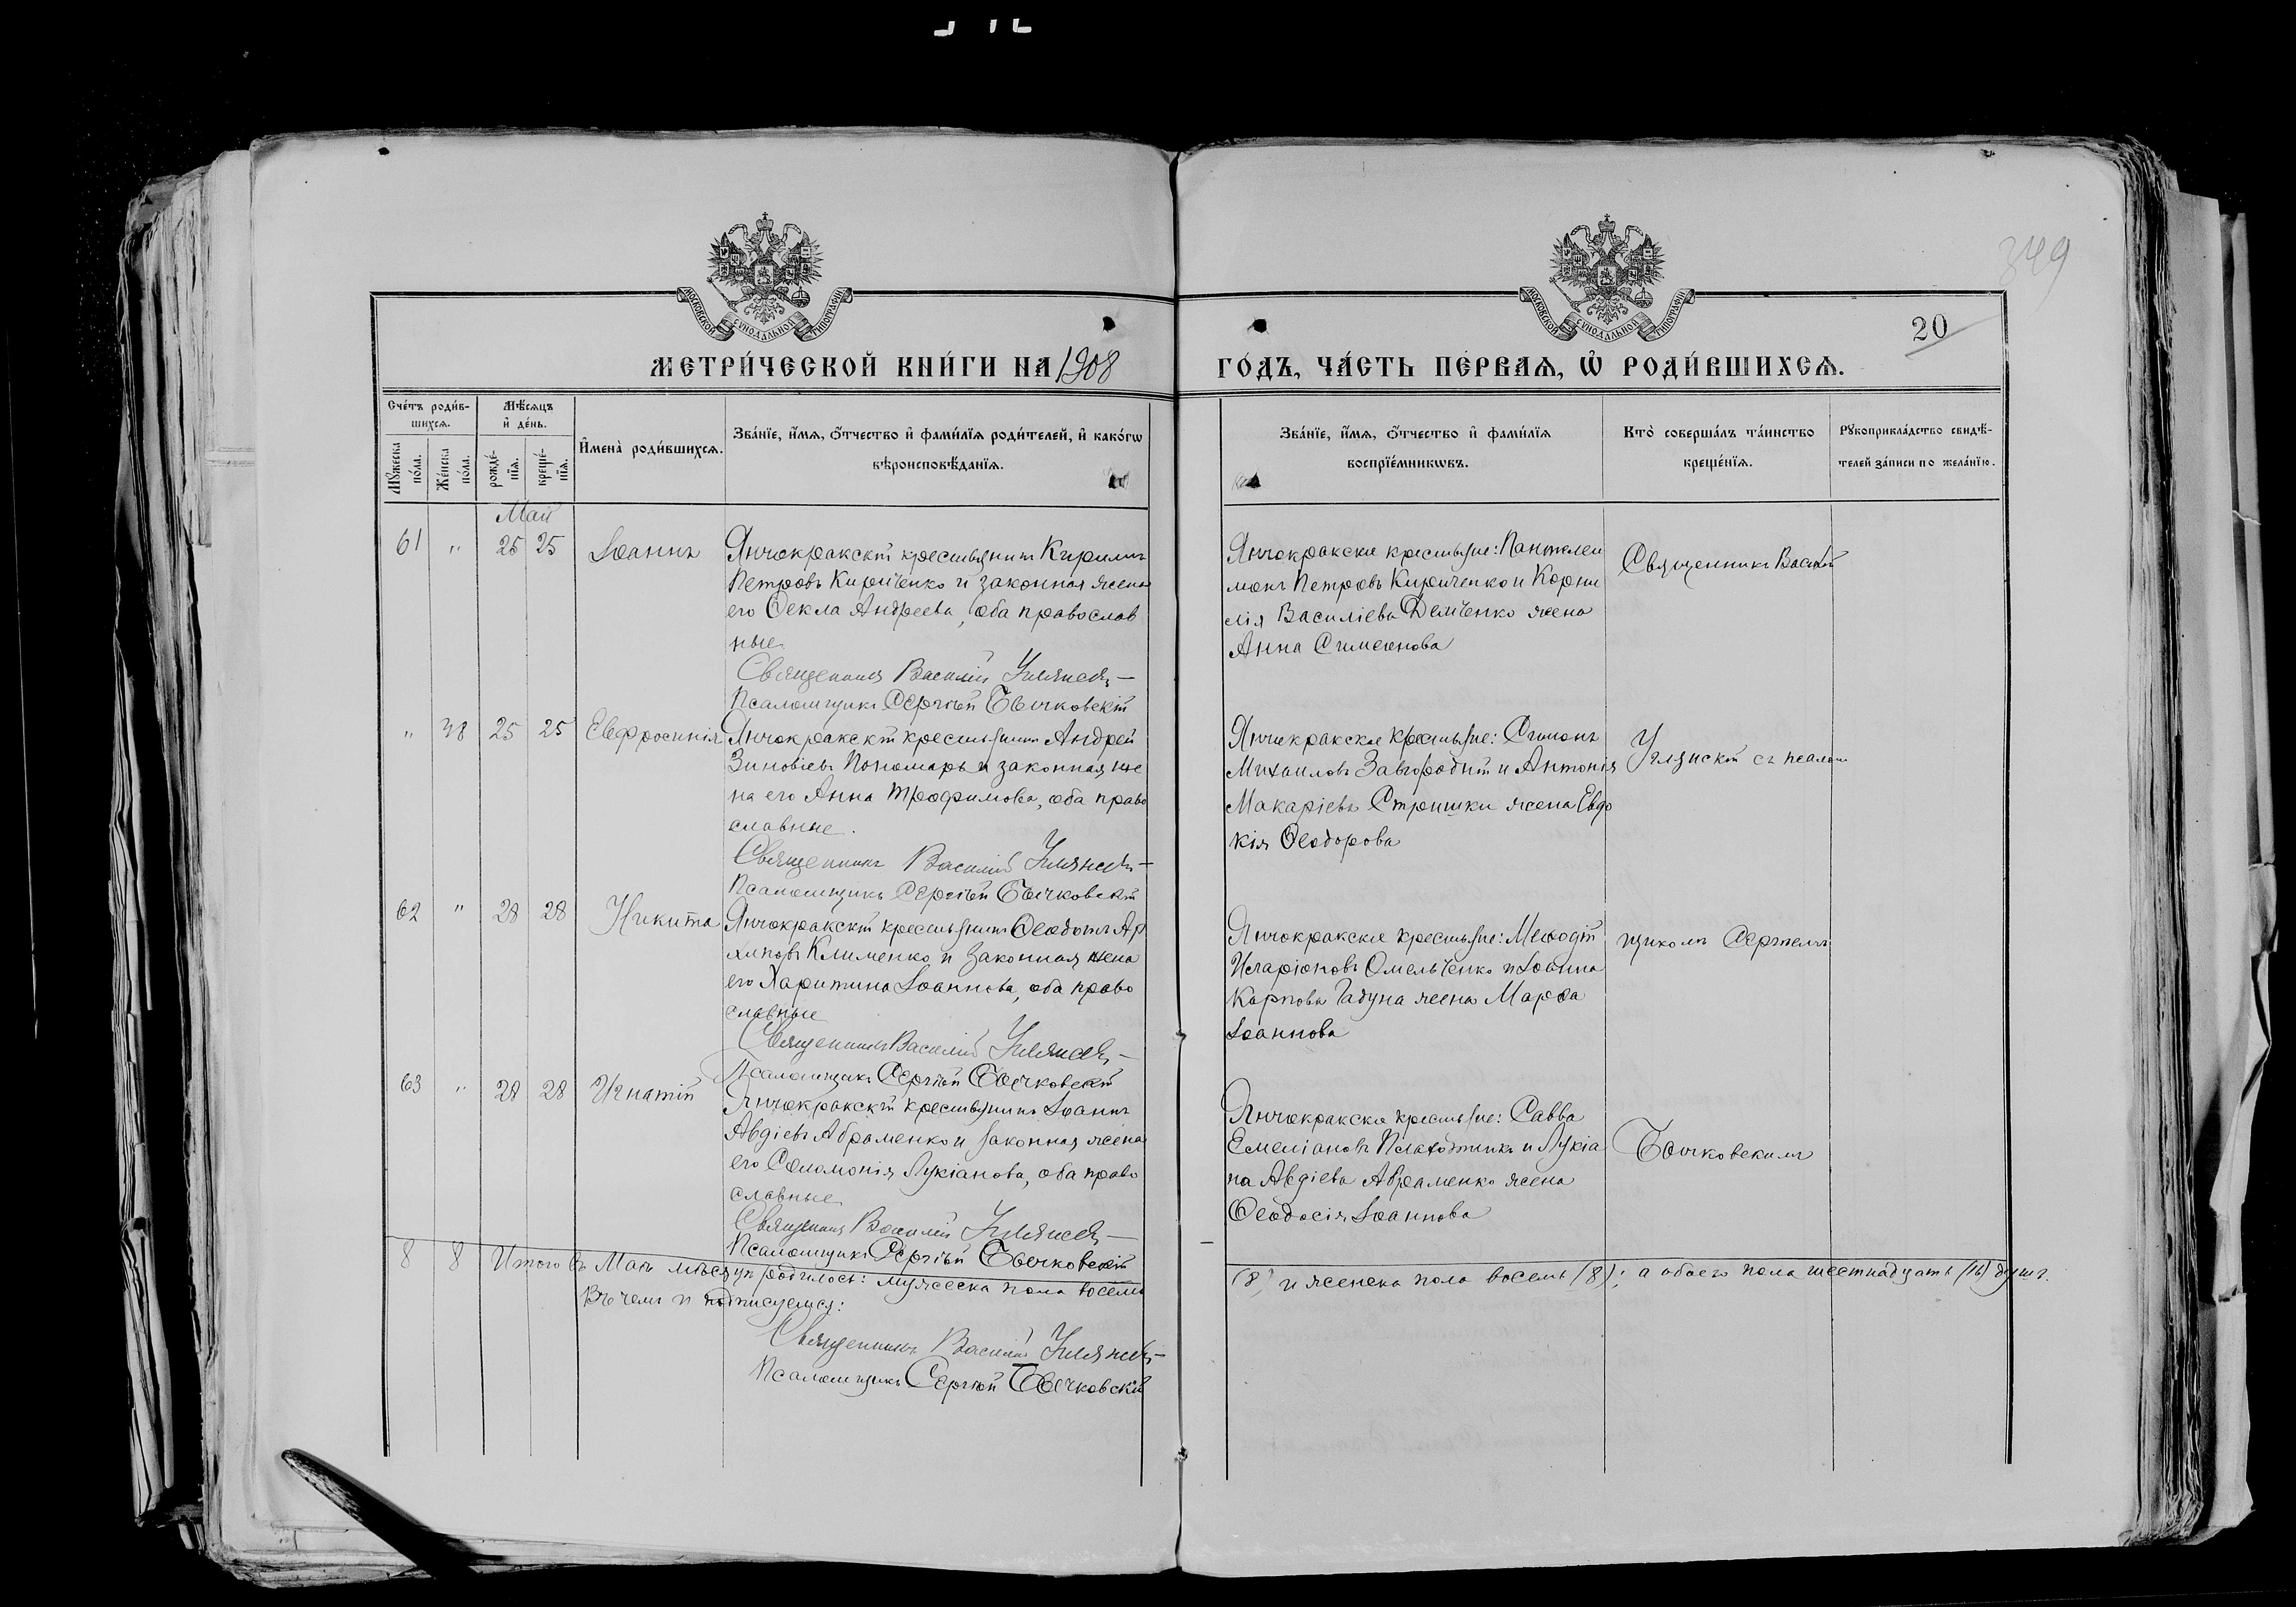 349
20
МОСКОВСКОЙ СѴНОДАЛЬНОЙ ТИПОГРАФІИ
МОСКОВСКОЙ СѴНОДАЛЬНОЙ ТИПОГРАФІИ
МЕТРИ́ЧЕСКОЙ КНИ́ГИ НА 1908
ГО́ДЪ, ЧА́СТЬ ПЕ́РВАЯ, Ѡ РОДИ́ВШИХСѦ.
Сче́тъ роди́в-
шихсѧ.
Мꙋ́жеска
по́ла.
Же́нска
по́ла.
Мѣ́сяцъ
и҆ де́нь.
рожде́-
нїѧ.
креще́-
нїѧ.
И҆мена̀ роди́вшихсѧ.
Зва́нїе, и҆́мѧ, ѻ҆́тчество и҆ фами́лїѧ роди́телей, и҆ како́гѡ
вѣроисповѣ́данїѧ.
Зва́нїе, и҆́мѧ, ѻ҆́тчество и҆ фами́лїѧ
воспрїе́мникѡвъ.
Кто̀ соверша́лъ та́инство
креще́нїѧ.
Рꙋкоприкла́дство свидѣ́-
телей за́писи по жела́нїю.
Май
61 " 25 25 Іоаннъ
Янчокракскій крестьянинъ Кириллъ
Петровъ Кириченко и законная жена
его Ѳекла Андреева, оба православ
ные
Священникъ Василій Улянскій
Псаломщикъ Сергій Бычковскій
Янчокракскіе крестьяне: Пантелеи
монъ Петровъ Кириченко и Корни
лія Василіева Демченко жена
Анна Симеонова
Священникъ Василій
" 38 25 25 Евфросинія
Янчокракскій крестьянинъ Андрей
Зиновіевъ Пономарь и законная же
на его Анна Трофимова, оба право
славные.
Священникъ Василій Улянскій
Псаломщикъ Сергій Бычковскій
Янчокракскіе крестьяне: Симонъ
Михаиловъ Завгородній и Антонія
Макаріева Стришки жена Евдо
кія Ѳеодорова
Улянскій съ псалом
62 " 28 28 Никита
Янчокракскій крестьянинъ Ѳеодотъ Ар
хиповъ Клименко и законная жена
его Харитина Іоаннова, оба право
славные
Священникъ Василій Улянскій
Псаломщикъ Сергій Бычковскій
Янчокракскіе крестьяне: Меѳодій
Иларіоновъ Омельченко и Іоанна
Карпова Гадуна жена Марѳа
Іоаннова
щикомъ Сергіемъ
63 " 28 28 Игнатій
Янчокракскій крестьянинъ Іоаннъ
Авдіевъ Абраменко и законная жена
его Соломонія Лукіанова, оба право
славные
Священникъ Василій Улянскій
Псаломщикъ Сергій Бычковскій
Янчокракскіе крестьяне: Савва
Емеліановъ Плахотникъ и Лукіа
на Авдіева Абраменко жена
Ѳеодосія Іоаннова
Бычковскимъ
8 8 Итого въ Маѣ мѣсяцѣ родилось: мужеска пола восемь
(8) и женска пола восемь (8); а обоего пола шестнадцать (16) душъ.
Въ чемъ и подписуемся:
Священникъ Василій Улянскій
Псаломщикъ Сергій Бычковскій